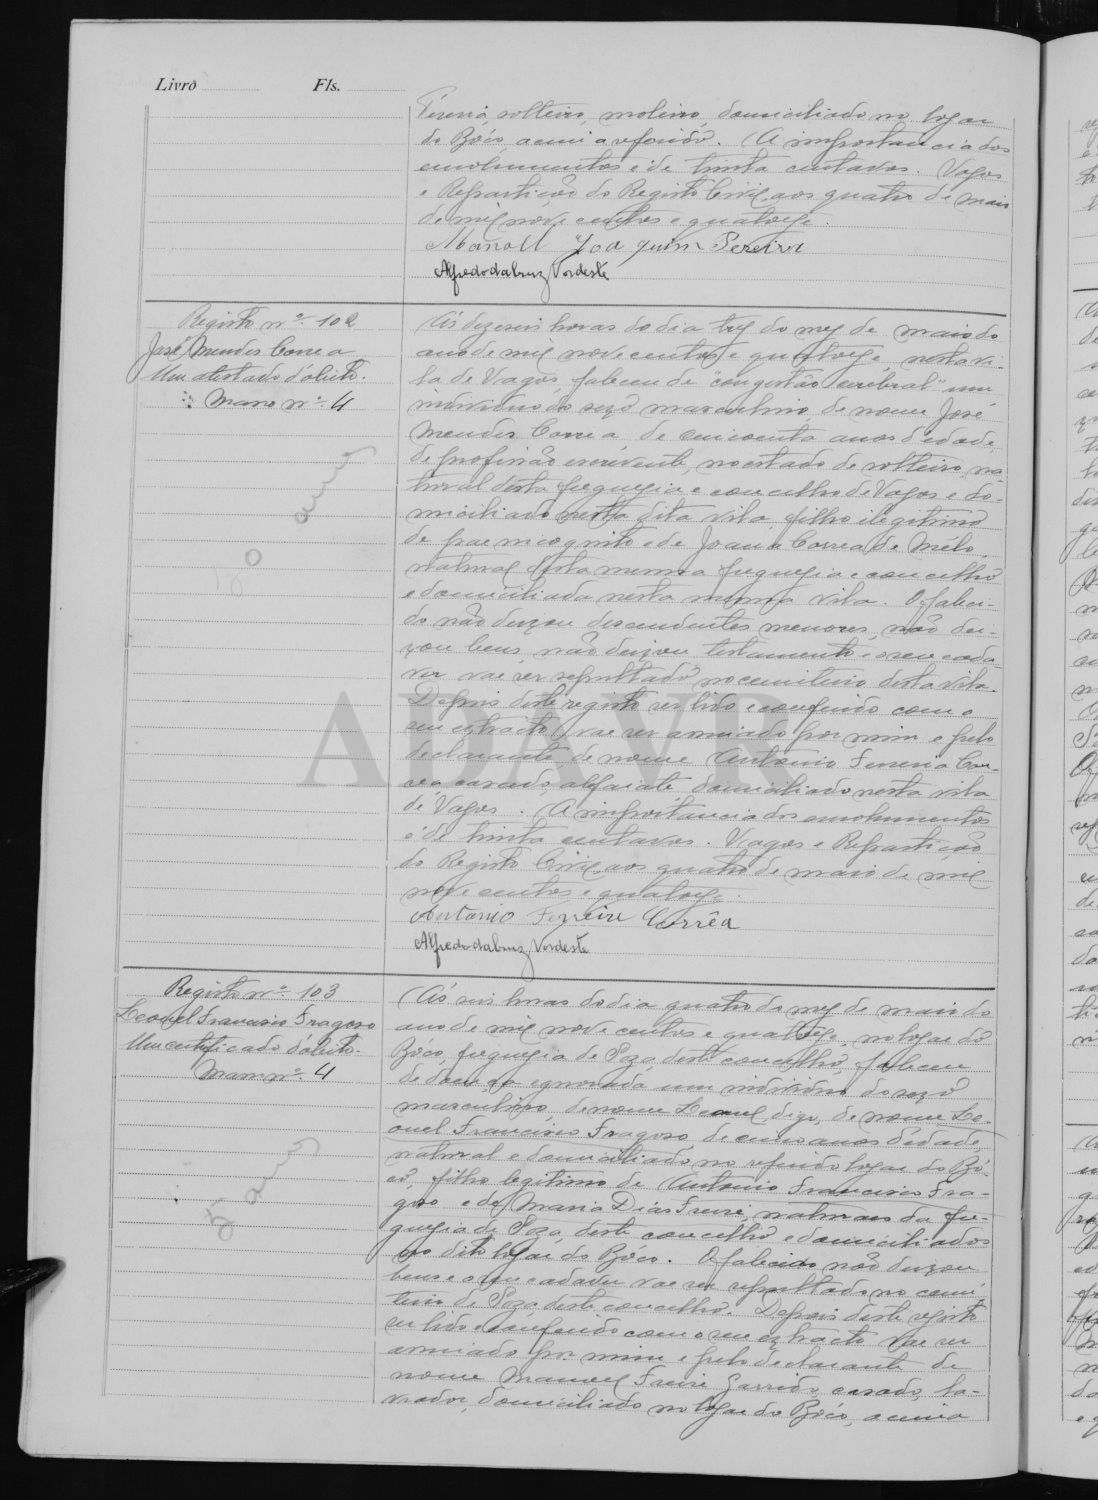 Livro Fls.
Pereira, solteiro, moleiro, domiciliado no logar
do Bôco, acima referido. A importancia dos
emolumentos é de trinta centavos. Vagos
e Repartição do Registo Civil, aos quatro de maio
de mil nove centos e quatorze.
Manoel Joaquim Pereira
Alfredo da Cruz Nordeste
Registo nº 102
José Mendes Correa
Um atestado d'obito.
Maço nº 4
50 anos
Ás dezeseis horas do dia trez do mez de maio do
ano de mil nove centos e quatorze nesta vi-
la de Vagos, faleceu de "congestão cerebral" um
individuo do sexo masculino, de nome José
Mendes Correa, de cincoenta anos d'edade,
de profissão escrevente, no estado de solteiro, na-
tural desta freguezia e concelho de Vagos e do-
miciliado nesta dita vila, filho ilegitimo
de pae incognito e de Joana Correa de Mélo,
natural desta mesma freguezia e concelho
e domiciliada nesta mesma vila. O faleci-
do não deixou descendentes menores, não dei-
xou bens, não deixou testamento e o seu cada-
ver vae ser sepultado no cemiterio desta vila.
Depois deste registo ser lido e conferido com o
seu extracto, vae ser assinado por mim e pelo
declarante de nome Antonio Ferreira Cor-
rea, casado, alfaiate, domiciliado nesta vila
de Vagos. A importancia dos emolumentos
é de trinta centavos. Vagos e Repartição
do Registo Civil, aos quatro de maio de mil
nove centos e quatorze.
Antonio Ferreira Corrêa
Alfredo da Cruz Nordeste
ADAVR
Registo nº 103
Leonel Francisco Fragoso
Um certificado d'obito.
Maço nº 4
5 anos
Ás seis horas do dia quatro do mez de maio do
ano de mil nove centos e quatorze, no logar do
Bôco, freguezia de Soza, deste concelho, faleceu
de doença ignorada um individuo do sexo
masculino, de nome Leonel, digo, de nome Le-
onel Francisco Fragoso, de cinco anos d'edade,
natural e domiciliado no referido logar do Bô-
co, filho legitimo de Antonio Francisco Fra-
goso e de Maria Dias Freire, naturaes da fre-
guezia de Soza, deste concelho e domiciliados
no dito logar do Bôco. O falecido não deixou
bens e o seu cadaver vae ser sepultado no cemi-
terio de Soza deste concelho. Depois deste registo
ser lido e conferido com o seu extracto vae ser
assinado por mim e pelo declarante de
nome Manoel Freire Garrido, casado, la-
vrador, domiciliado no logar do Bôco, acima